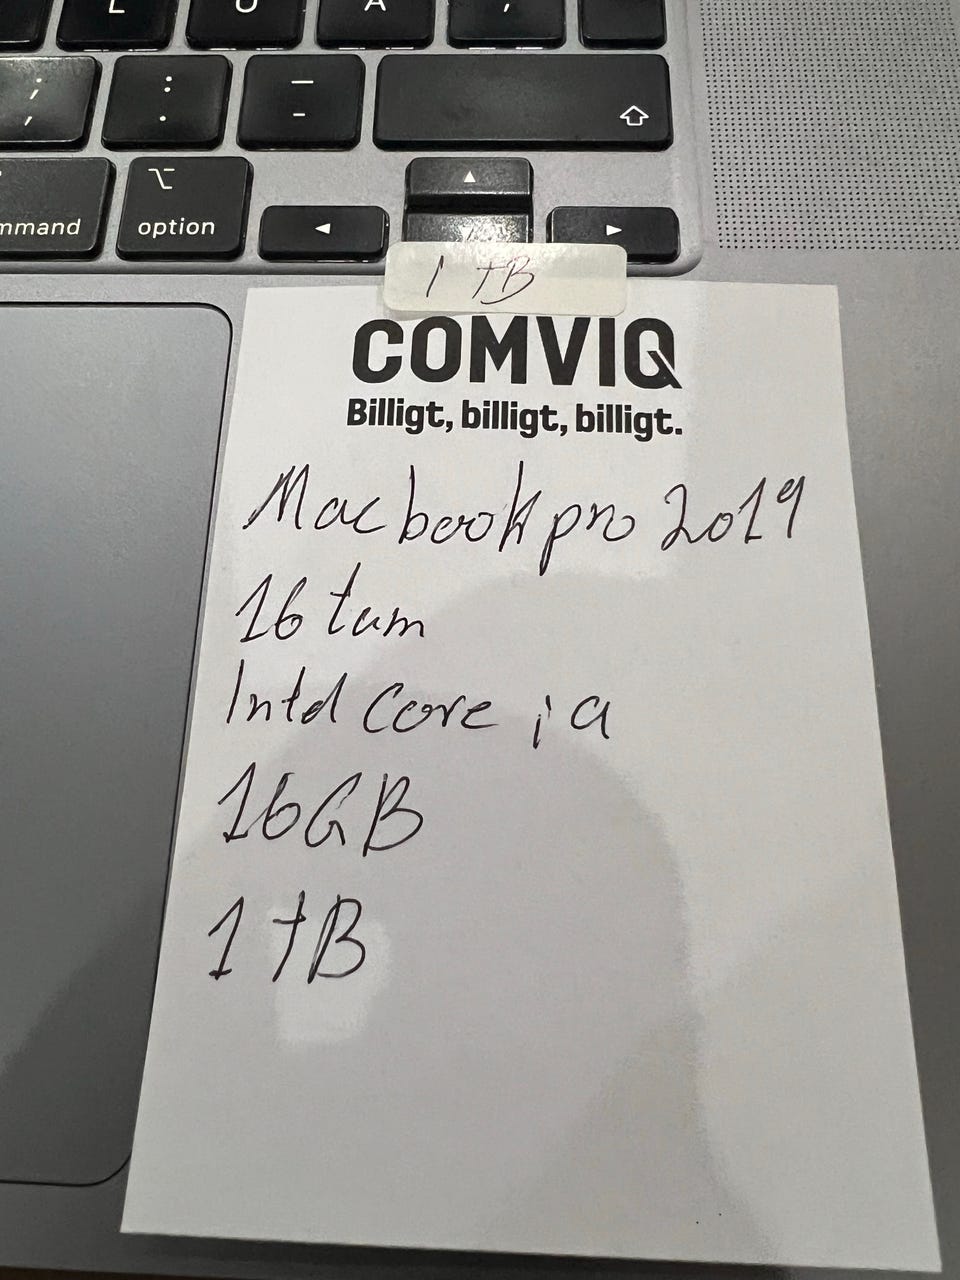 L Ö Ä ,
; , : . _ -
command ⌥ option
1 TB
COMVIQ
Billigt, billigt, billigt.
Macbook pro 2019
16 tum
Intel Core i 9
16GB
1 TB